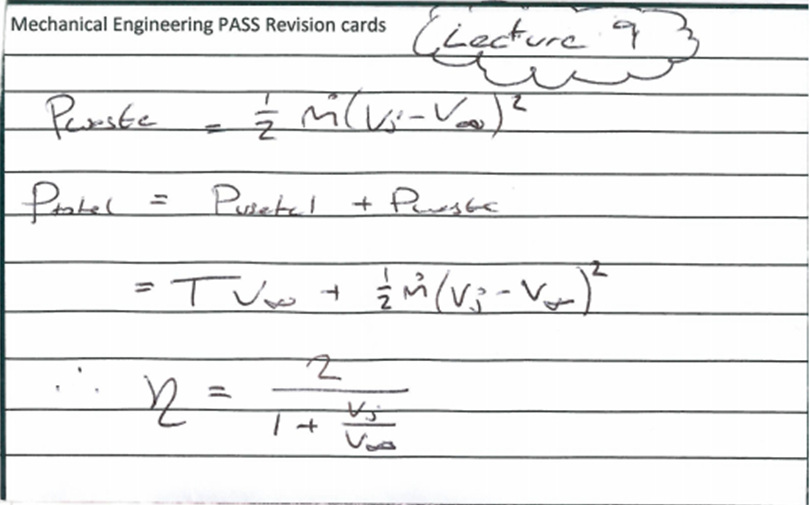 Mechanical Engineering PASS Revision cards
Lecture 9
Pwaste = 1/2 ṁ(Vj - V∞)²
Ptotal = Puseful + Pwaste
= TV∞ + 1/2 ṁ(Vj - V∞)²
∴ η = 2 / (1 + Vj/V∞)